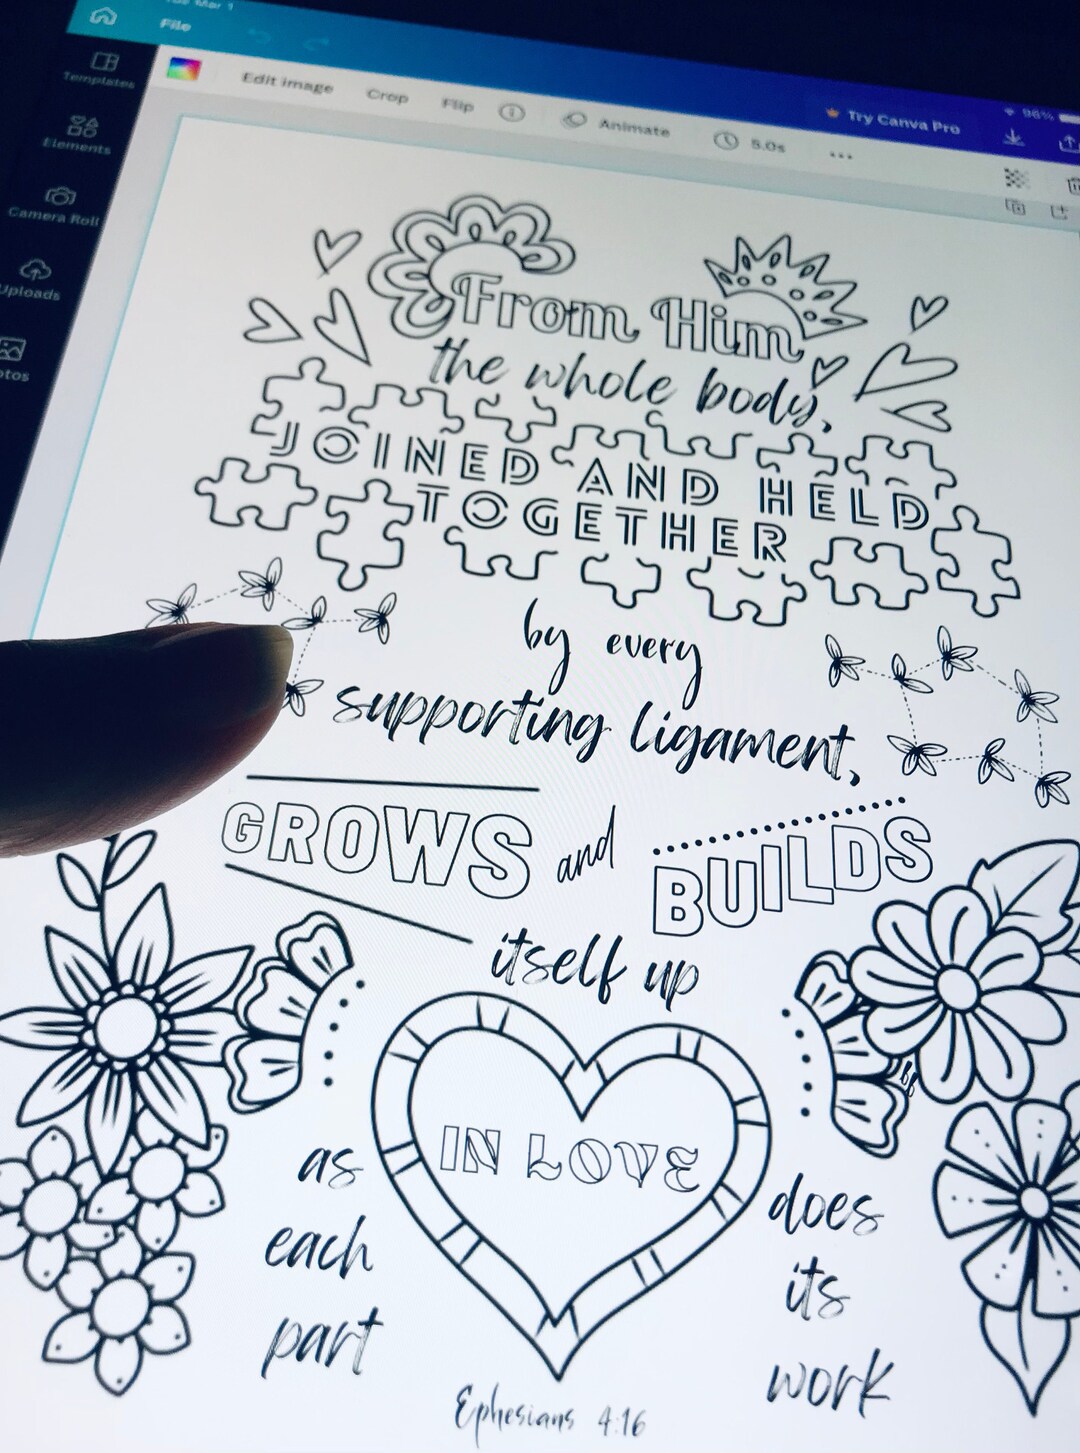 Tue Mar 1
File
96%
Try Canva Pro
Templates
Edit image Crop Flip Animate 5.0s
Elements
Camera Roll
Uploads
From Him
the whole body,
JOINED AND HELD
TOGETHER
by every
supporting ligament,
GROWS and BUILDS
itself up
IN LOVE
as
each
part
does
its
work
Ephesians 4:16